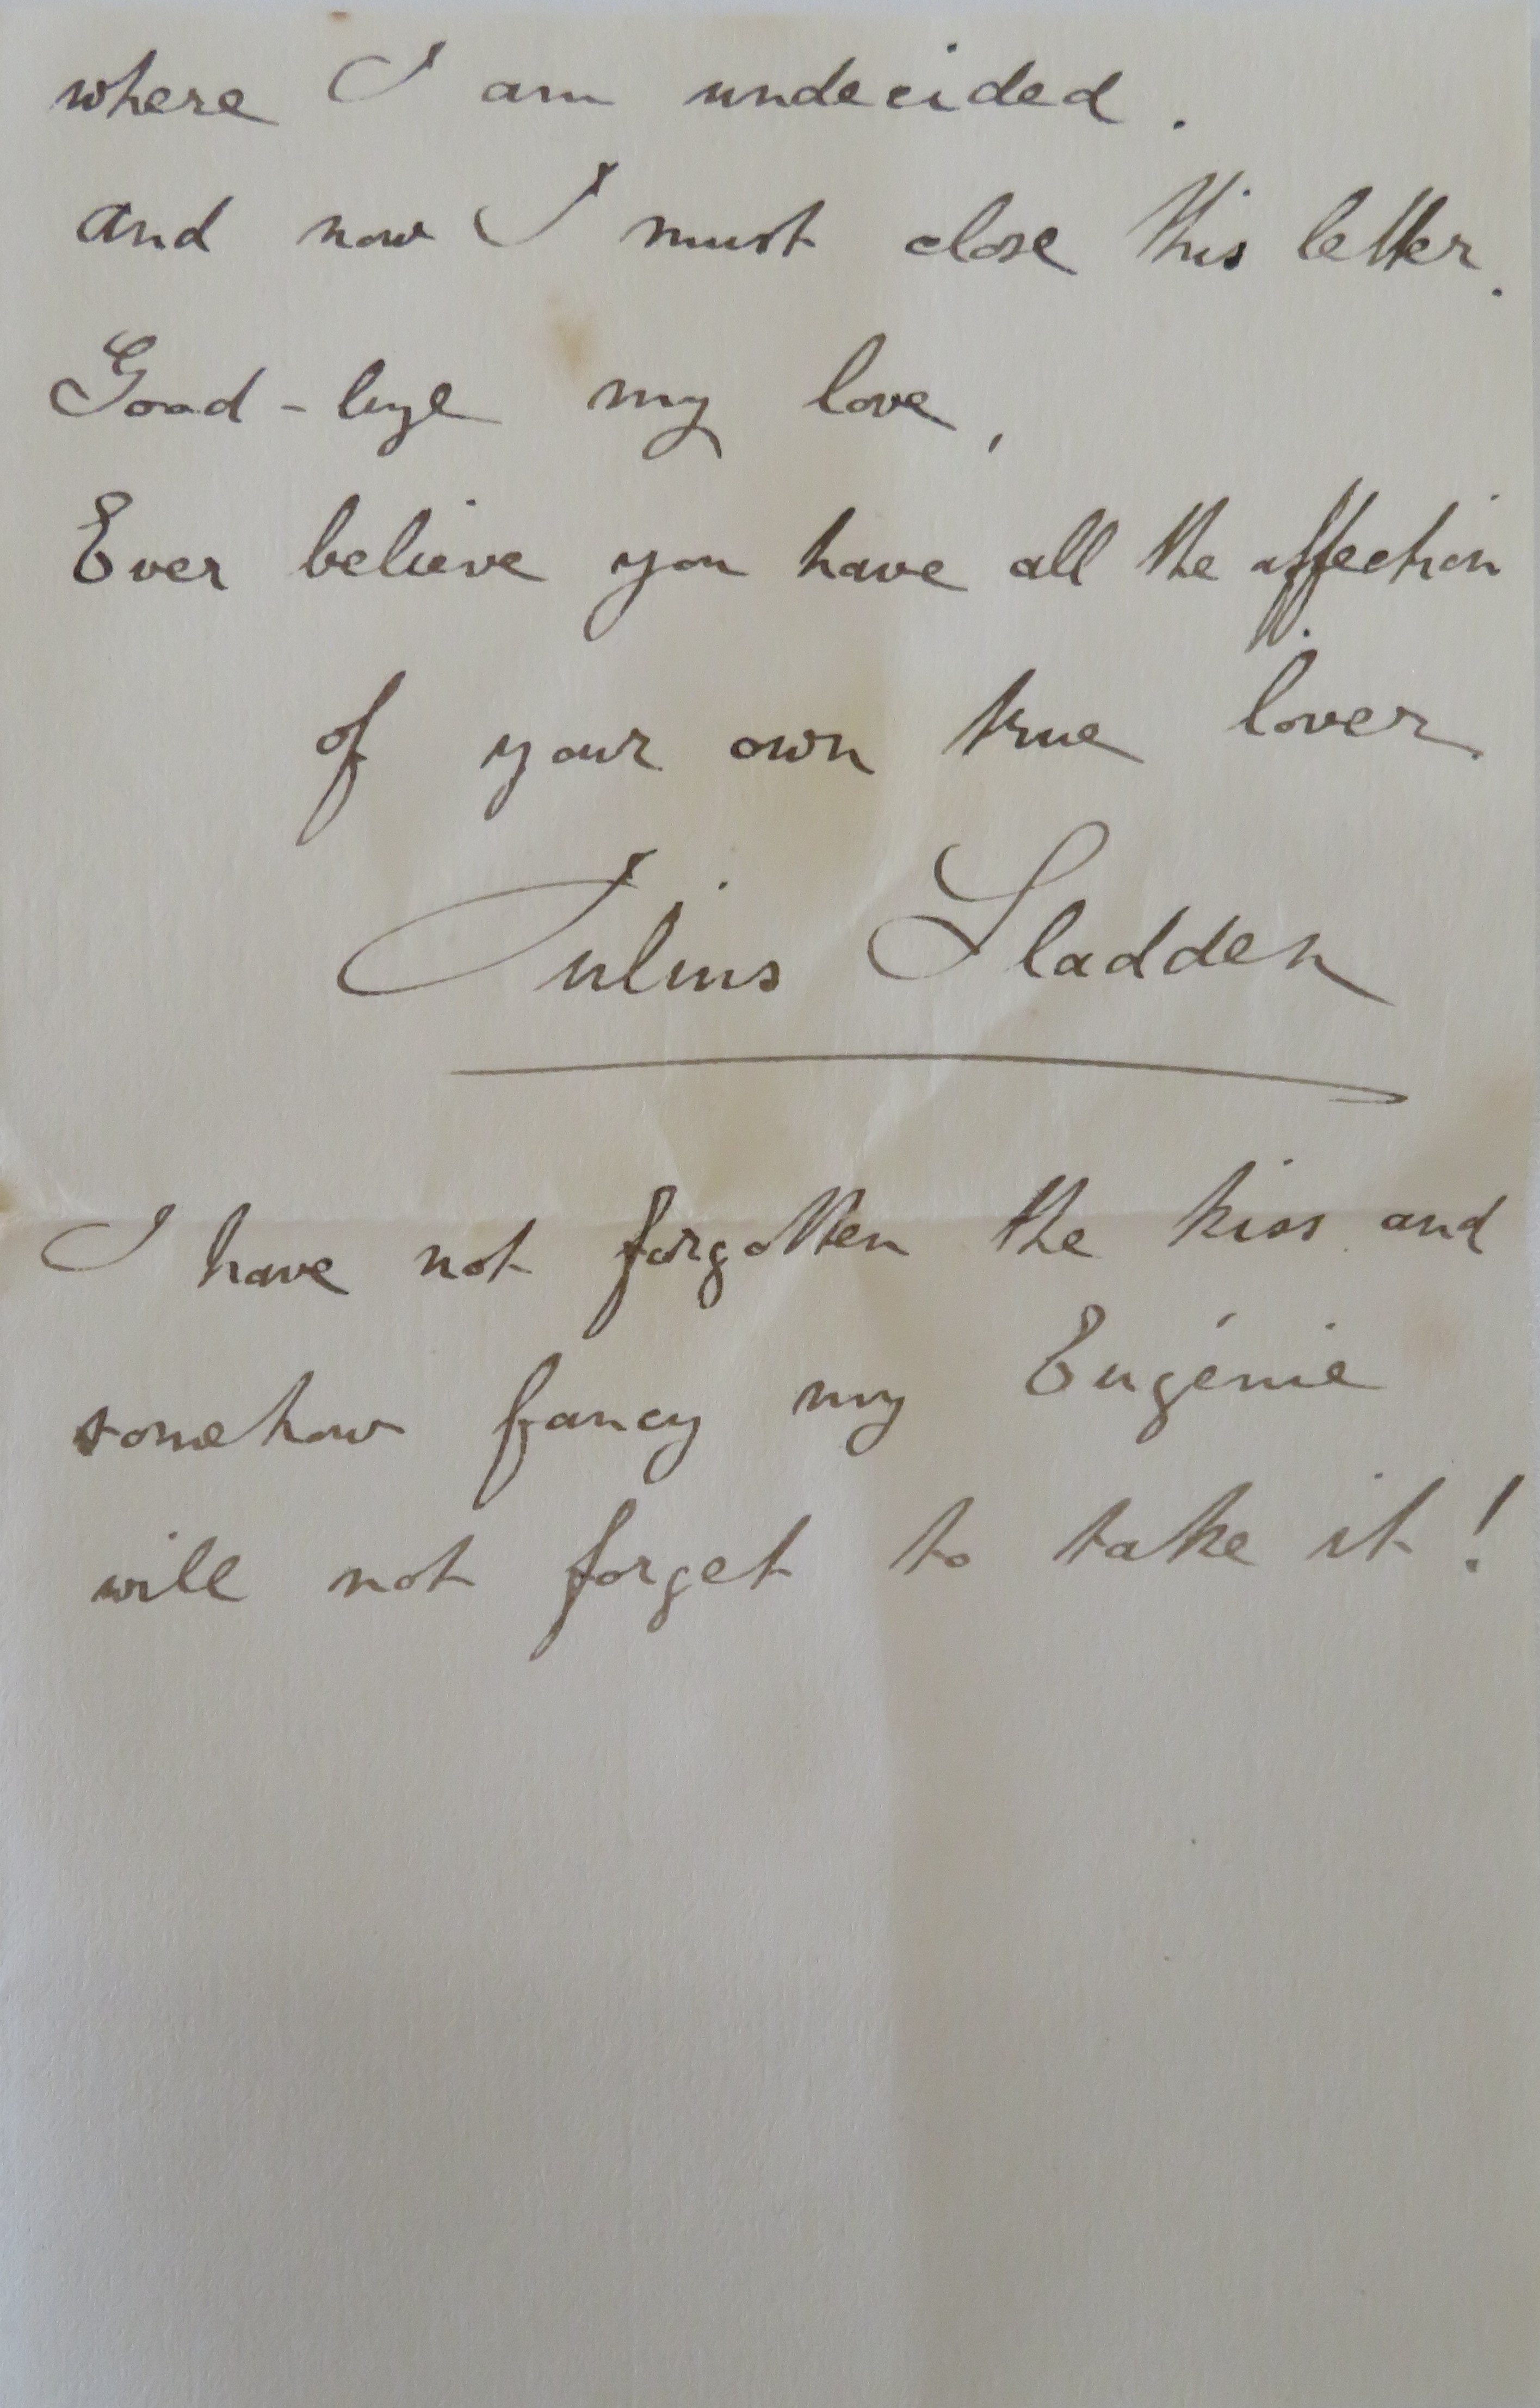 where I am undecided.
And now I must close this letter.
Good-bye my love,
Ever believe you have all the affection
of your own true lover
Julius Sladden
I have not forgotten the kiss and
somehow fancy my Eugénie
will not forget to take it!